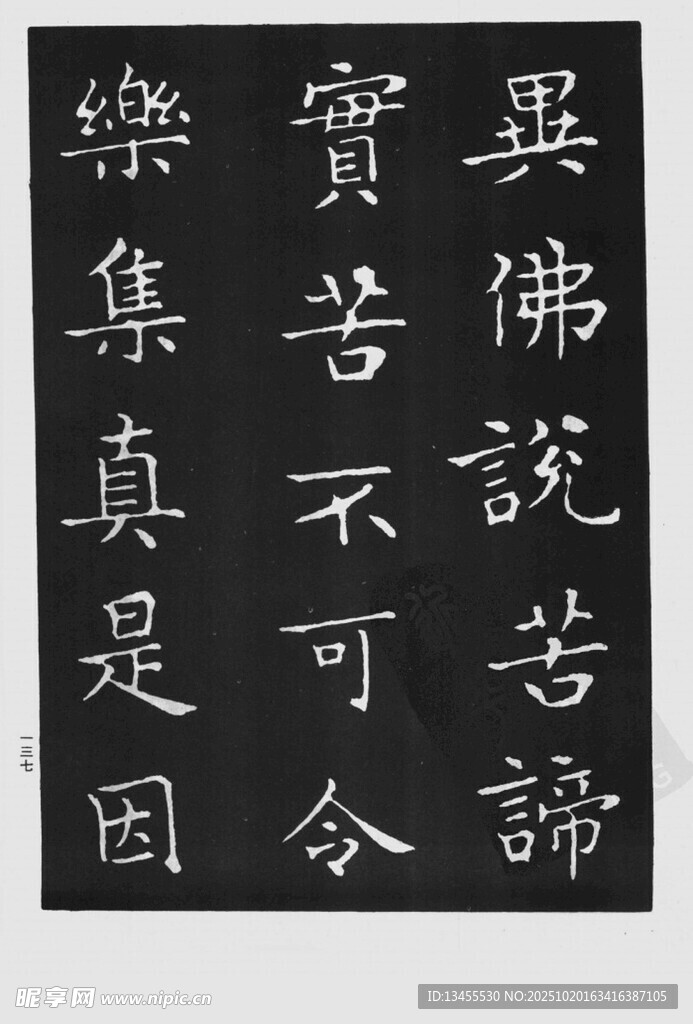 異佛説苦諦
實苦不可令
樂集真是因
一三七
昵享网 www.nipic.cn
ID:13455530 NO:20251020163416387105